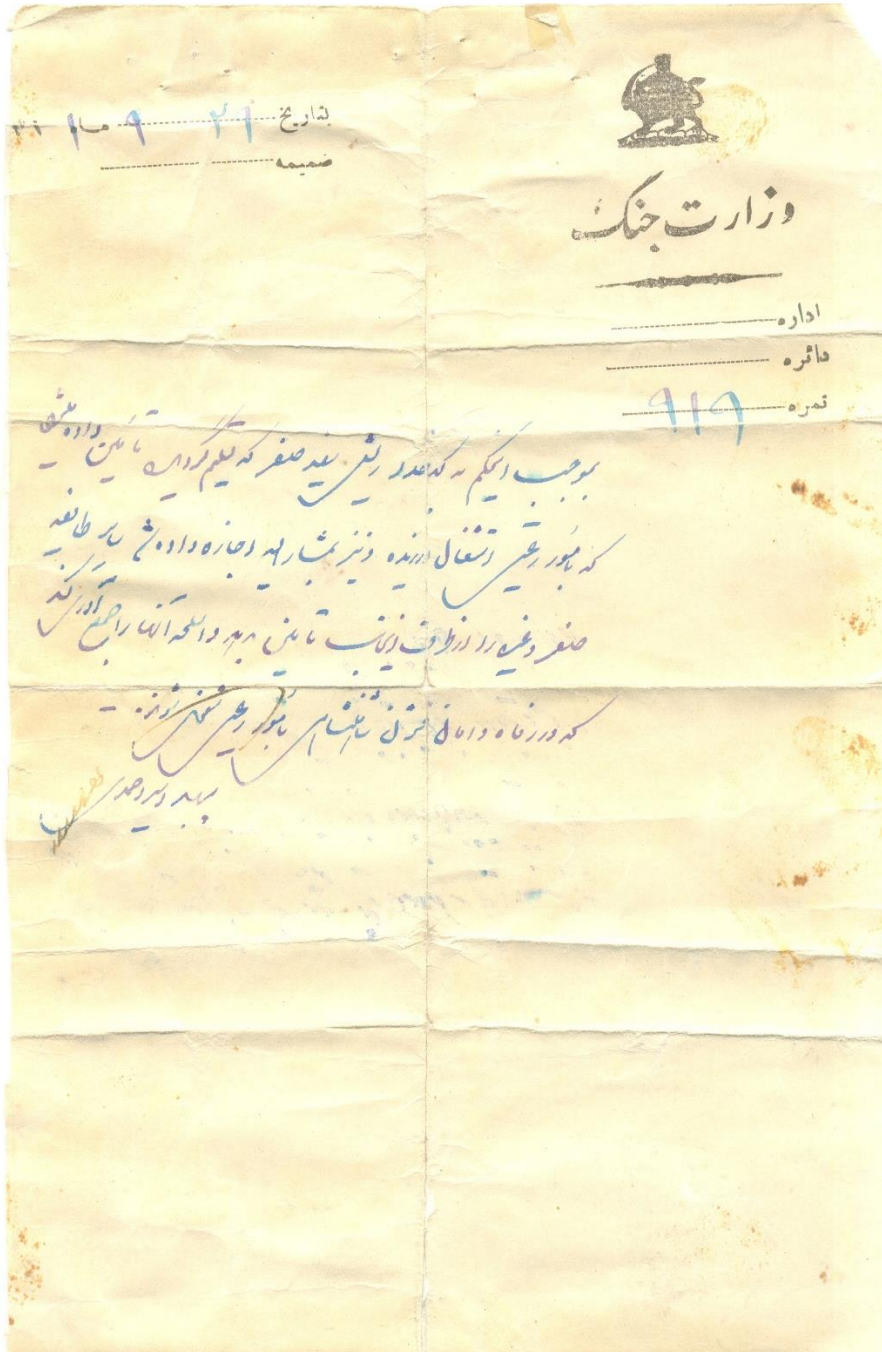 بتاریخ ۲۱ ۹ ماه ۲۱
ضمیمه
وزارت جنگ
اداره
دائره
نمره ۹۱۹
بموجب اینحکم به کدخدا رئیس صفر که تسلیم گردیده تأمین داده
که بامور رعیتی اشتغال ورزیده و نیز بمشارالیه اجازه داده سایر طایفه
صفر و غیره را از طرف اینجانب تأمین بدهد و اسلحه آنها را جمع آوری کند
که در رفاه و امان بامور رعیتی مشغول شوند
سپهبد امیراحمدی